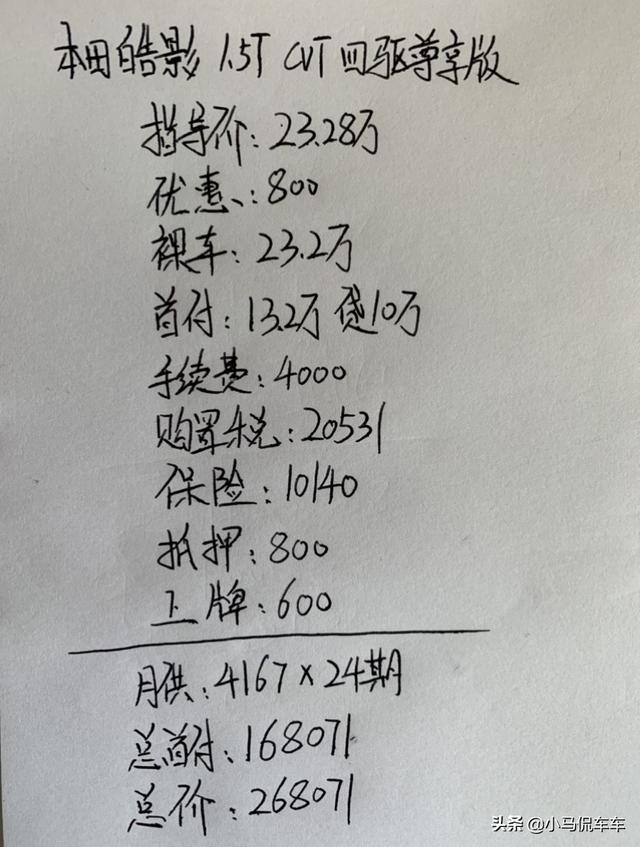 本田皓影 1.5T CVT 四驱尊享版
指导价:23.28万
优惠:800
裸车:23.2万
首付:13.2万 贷10万
手续费:4000
购置税:20531
保险:10140
抵押:800
上牌:600
月供:4167×24期
总首付:168071
总价:268071
头条 @小马侃车车